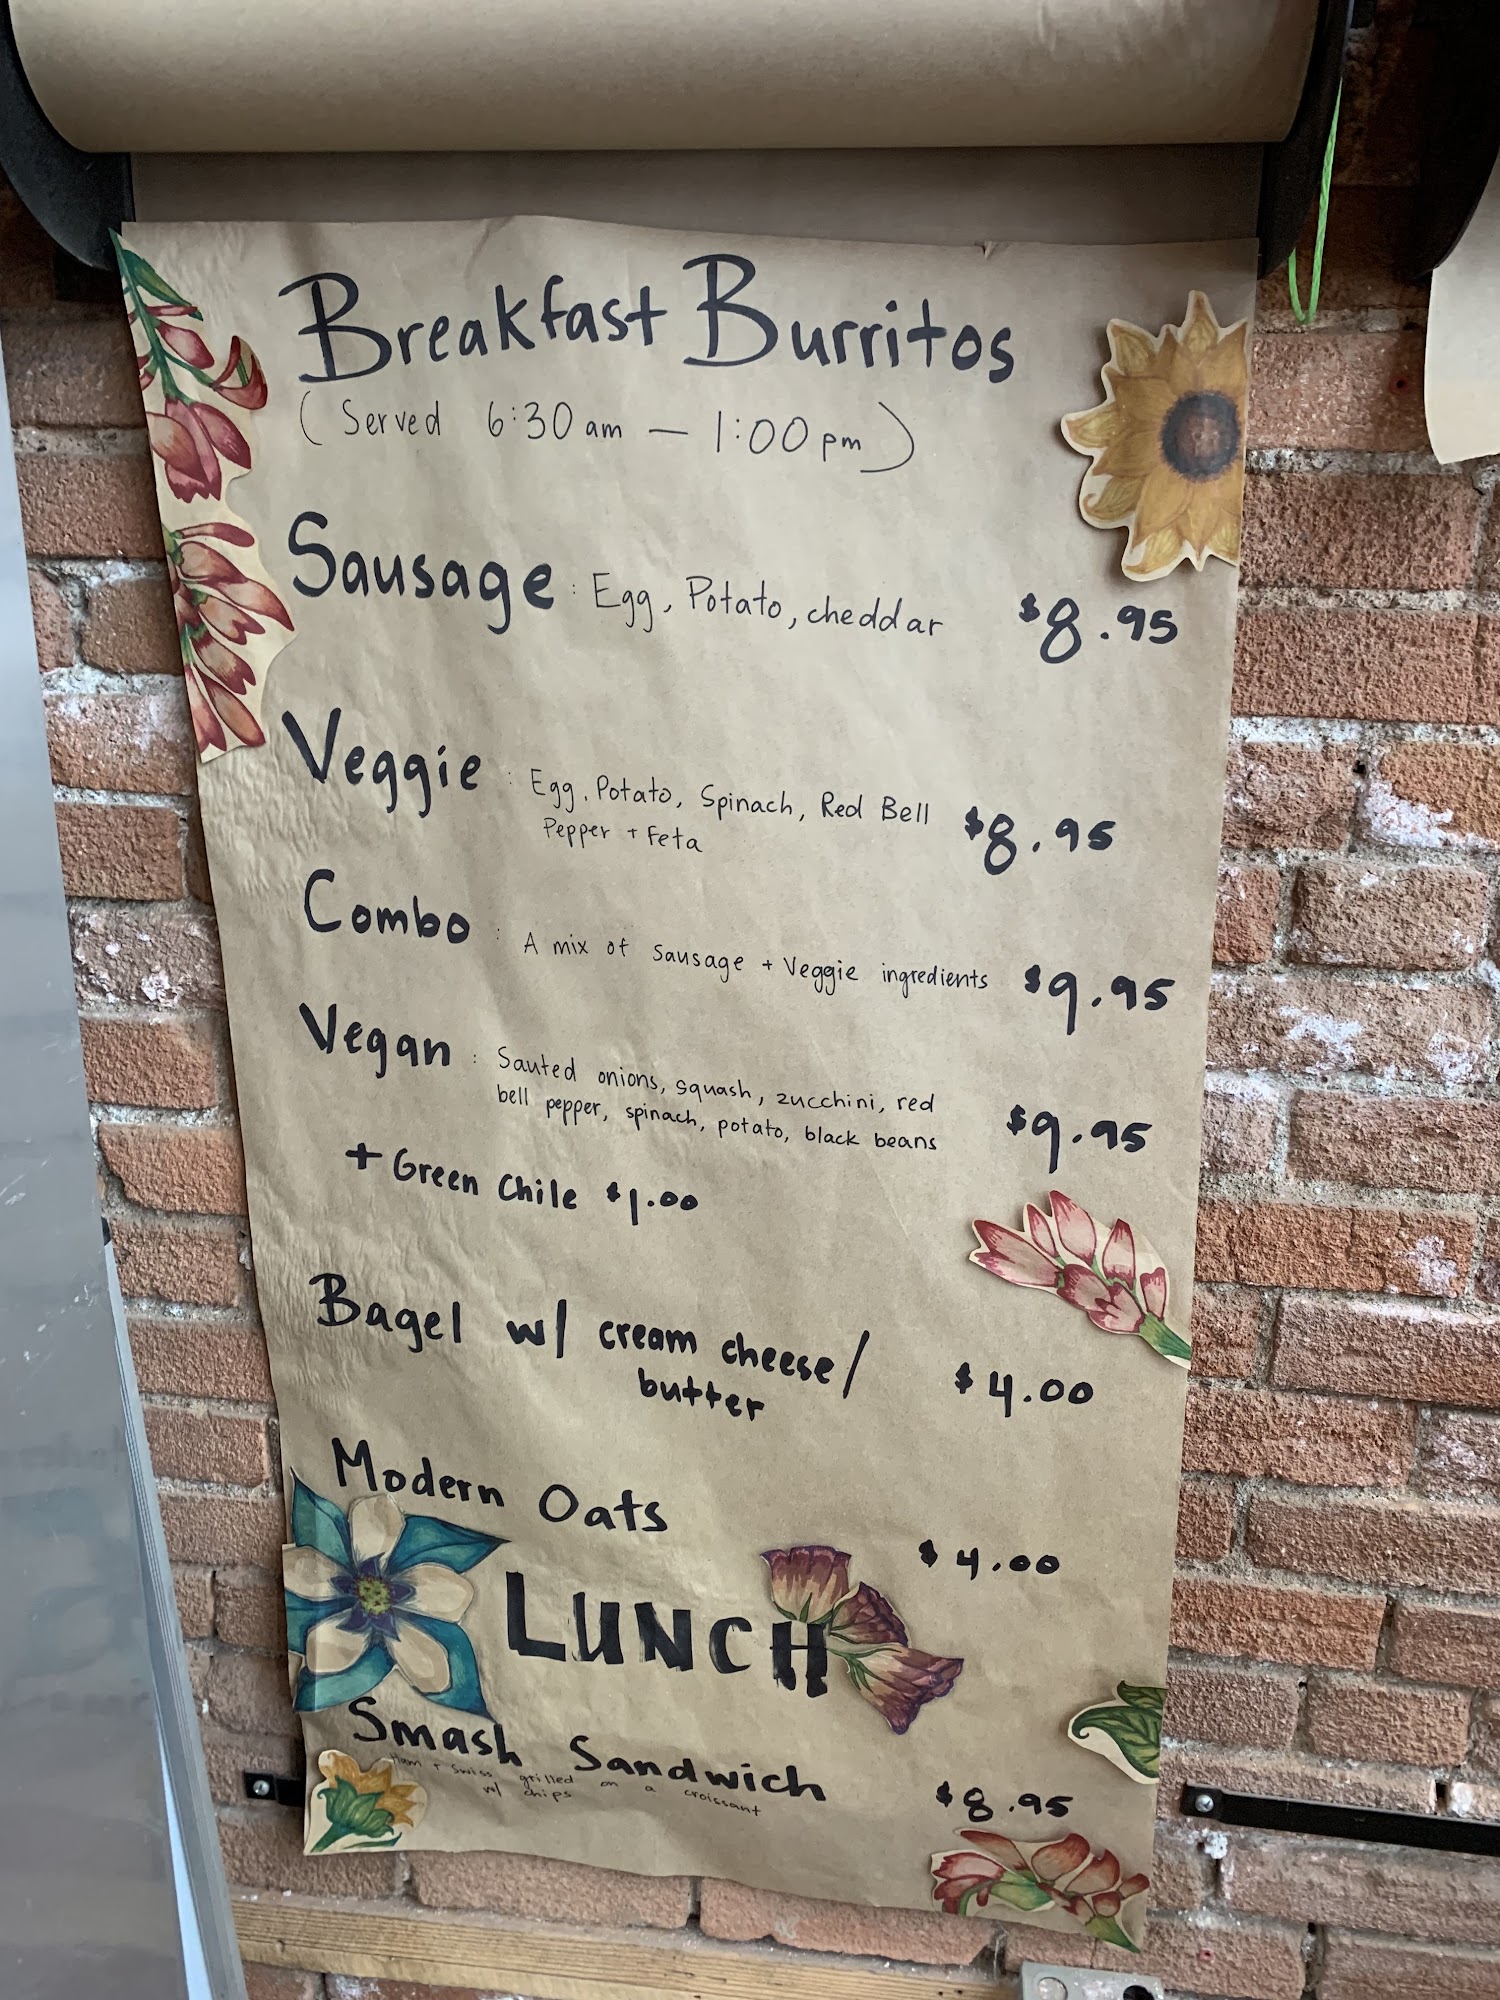 Breakfast Burritos
(Served 6:30am — 1:00pm)
Sausage : Egg, Potato, cheddar $8.95
Veggie : Egg, Potato, Spinach, Red Bell $8.95
Pepper + Feta
Combo : A mix of Sausage + Veggie ingredients $9.95
Vegan : Sauted onions, squash, zucchini, red
bell pepper, spinach, potato, black beans $9.95
+ Green Chile $1.00
Bagel w/ cream cheese/ $4.00
butter
Modern Oats
$4.00
LUNCH
Smash Sandwich $8.95
Ham + Swiss grilled on a croissant
w/ chips